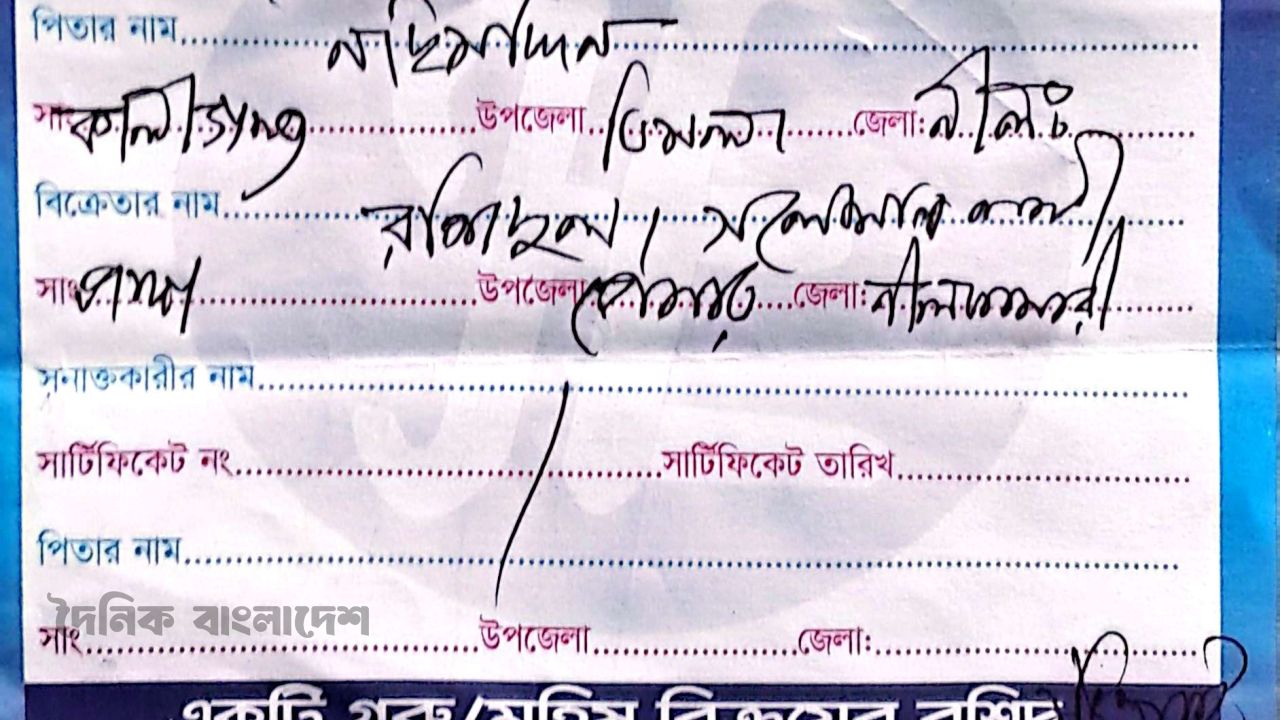 পিতার নাম.......... নছিমদ্দিন
সাং কালীগঞ্জ উপজেলা ডিমলা জেলা: নীলফ
বিক্রেতার নাম
সাং উপজেলা ডোমার জেলা: নীলফামারী
সনাক্তকারীর নাম
সার্টিফিকেট নং সার্টিফিকেট তারিখ
পিতার নাম
দৈনিক বাংলাদেশ
সাং উপজেলা জেলা:
একটি গরু/মহিষ বিক্রয়ের রশিদ